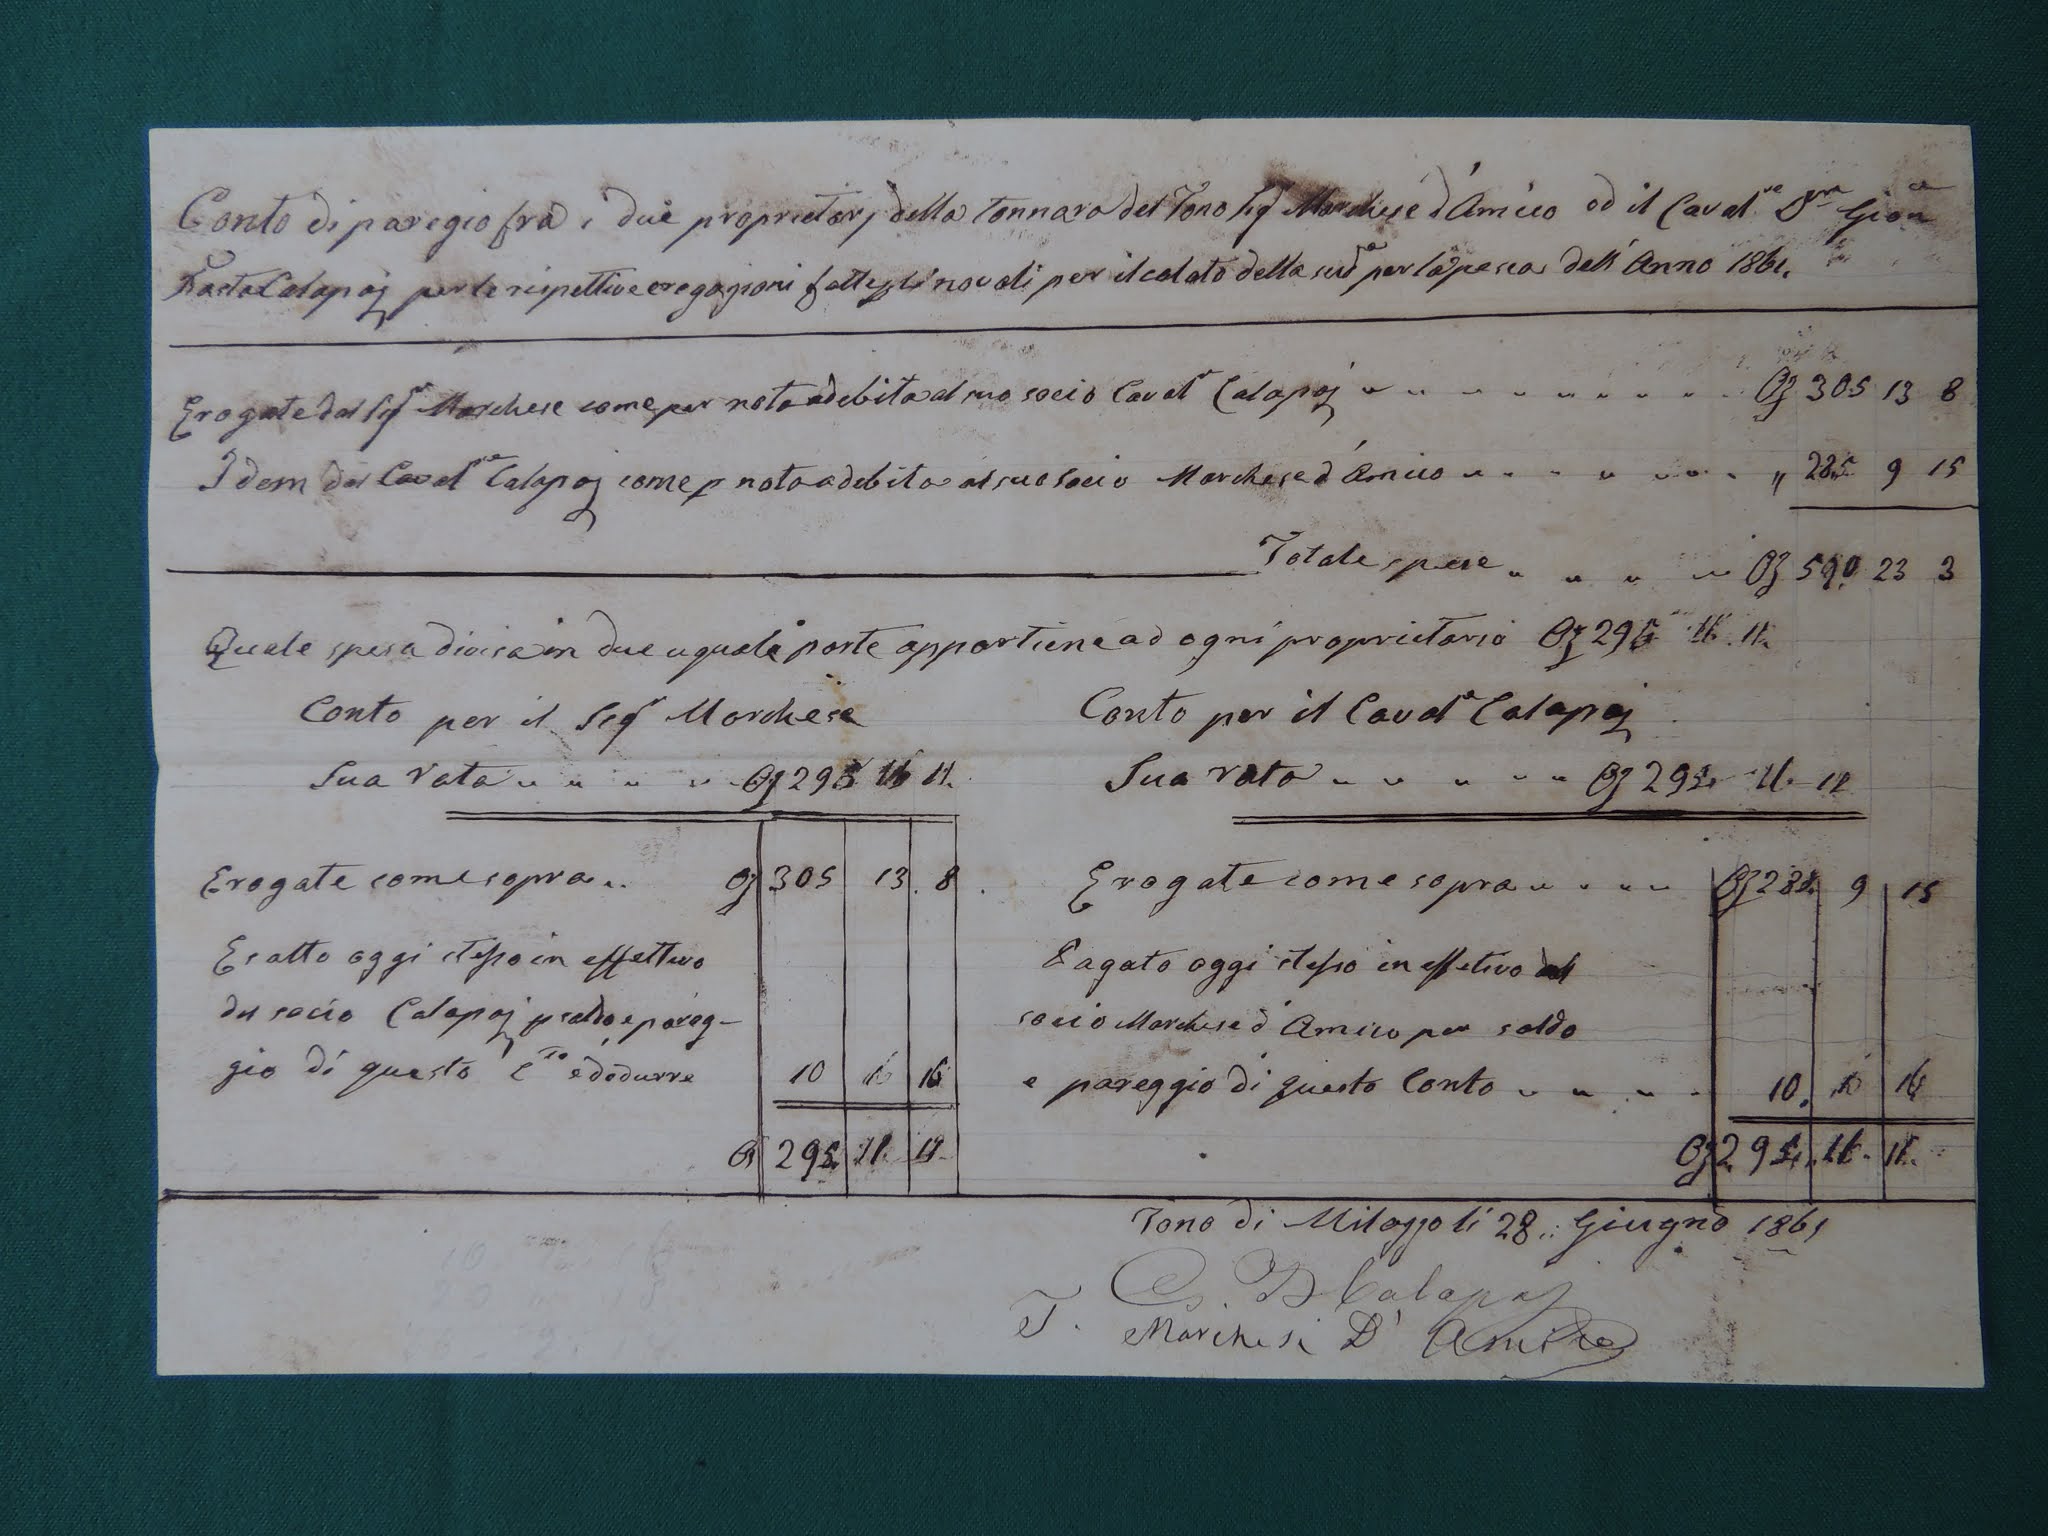 Conto di paregio fra i due proprietarj della Tonnara del Tono Sigr Marchese d'Amico ed il Cavalre Dn Gioan
Batta Calapaj per le rispettive erogazioni fatte per il calato della sudа per la pesca dell'Anno 1861.
Erogate dal Sigr Marchese come per nota a debito al suo socio Cavalre Calapaj " " " " " " " " " Oz 305 13 8
Idem dal Cavalre Calapaj come p nota a debito al suo socio Marchese d'Amico " " " " " " " " 285 9 15
Totale spese " " " " Oz 590 23 3
Quale spesa divisa in due uguale parte appartiene ad ogni proprietario Oz 295 11 11
Conto per il Sigr Marchese
Sua rata " " " " " Oz 295 11 11
Erogate come sopra " Oz 305 13 8
Esatto oggi stesso in effettivo
dal socio Calapaj p saldo e pareg-
gio di questo Cto e dedurre 10 16
Oz 295 11 11
Conto per il Cavalre Calapaj
Sua rata " " " " " Oz 295 11 11
Erogate come sopra " " " " Oz 285 9 15
Pagato oggi stesso in effetivo al
socio Marchese d'Amico per saldo
e pareggio di questo Conto " " " " 10 16
Oz 295 11 11
Tono di Milazzo li 28 Giugno 1861
Calapaj
Marchese D'Amico